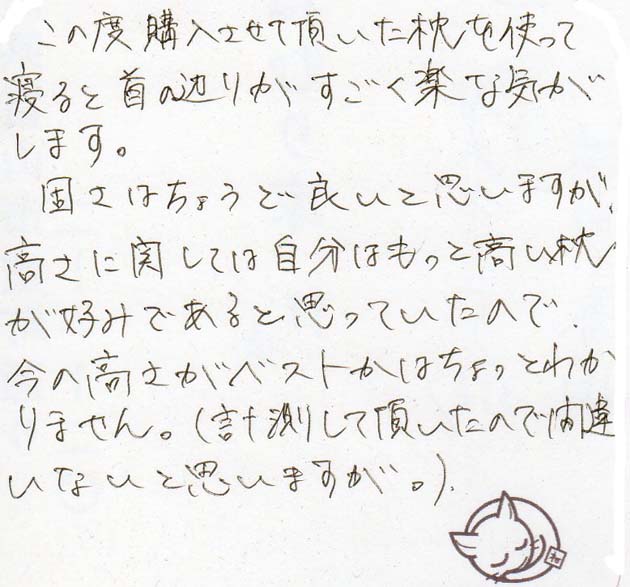 この度購入させて頂いた枕を使って
寝ると首の辺りがすごく楽な気が
します。
固さはちょうど良いと思いますが、
高さに関しては自分はもっと高い枕
が好みであると思っていたので、
今の高さがベストかはちょっとわか
りません。(計測して頂いたので間違
いないと思いますが。)